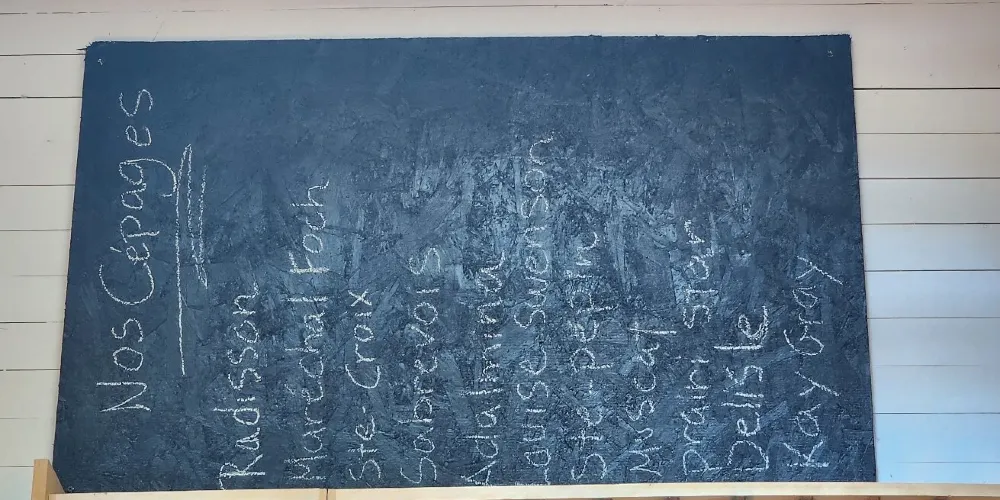 Nos Cépages
Radisson
Marechal Foch
Ste-Croix
Sabrevois
Adalmina
Louise Swenson
Ste-pépin
Muscat
Prairi star
Delisle
Kay Gray